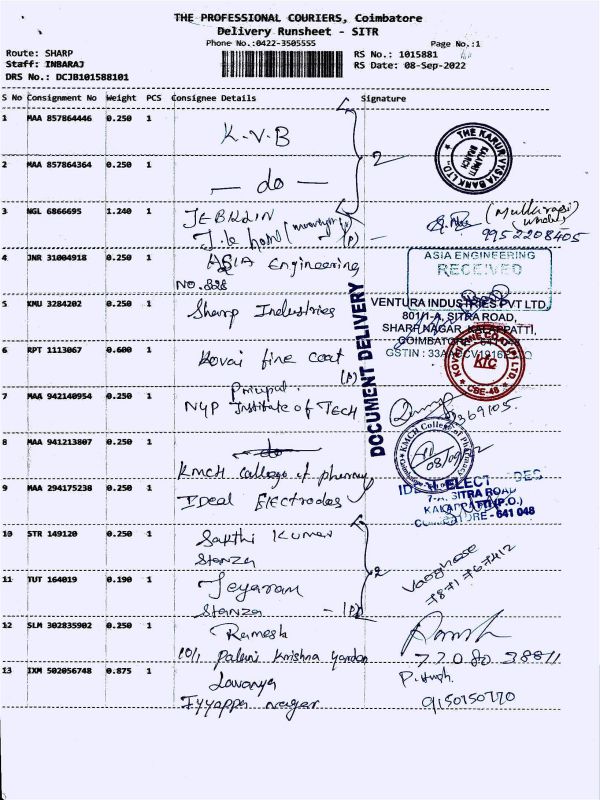 THE PROFESSIONAL COURIERS, Coimbatore
Delivery Runsheet - SITR
Phone No.:0422-3505555 Page No.:1
Route: SHARP RS No.: 1015881
Staff: INBARAJ RS Date: 08-Sep-2022
DRS No.: DCJB101588101
S No Consignment No Weight PCS Consignee Details Signature
1 MAA 857864446 0.250 1 K.V.B
2
THE KARUR VYSYA BANK LTD.,
KALAPATTI
BRANCH
2 MAA 857864364 0.250 1 — do —
3 NGL 6866695 1.240 1 JEBRLIN
J.k hotel (P)
9952208405
4 JNR 31004918 0.250 1 ASIA Engineering
NO. 828
ASIA ENGINEERING
RECEIVED
5 KMU 3284202 0.250 1 Sharp Industries
VENTURA INDUSTRIES PVT LTD
801/1-A, SITRA ROAD,
SHARP NAGAR, KALAPPATTI,
COIMBATORE - 641
GSTIN : 33
DOCUMENT DELIVERY
6 RPT 1113067 0.600 1 Kovai fine coat
(P)
KOVAI FINE COAT (P) LTD.
KFC
CBE-48
7 MAA 942140954 0.250 1 Principal.
NGP Institute of TECH
369105.
8 MAA 941213807 0.250 1 do
KMCH college of pharmacy
KMCH College of
08/09/22
9 MAA 294175238 0.250 1 Ideal Electrodes
IDEAL ELECTRODES
7-A, SITRA ROAD
KALAPPATTI (P.O.)
COIMBATORE - 641 048
10 STR 149120 0.250 1 Sakthi Kumar
Stanza
2
Varghese
7871767412
11 TUT 164019 0.190 1 Jeyaram
Stanza - (P)
12 SLM 302835902 0.250 1 Ramesh
10/1 Palani Krishna garden
Ramesh
13 IXM 502056748 0.875 1 Lavanya
Iyyappa nagar
9150150770